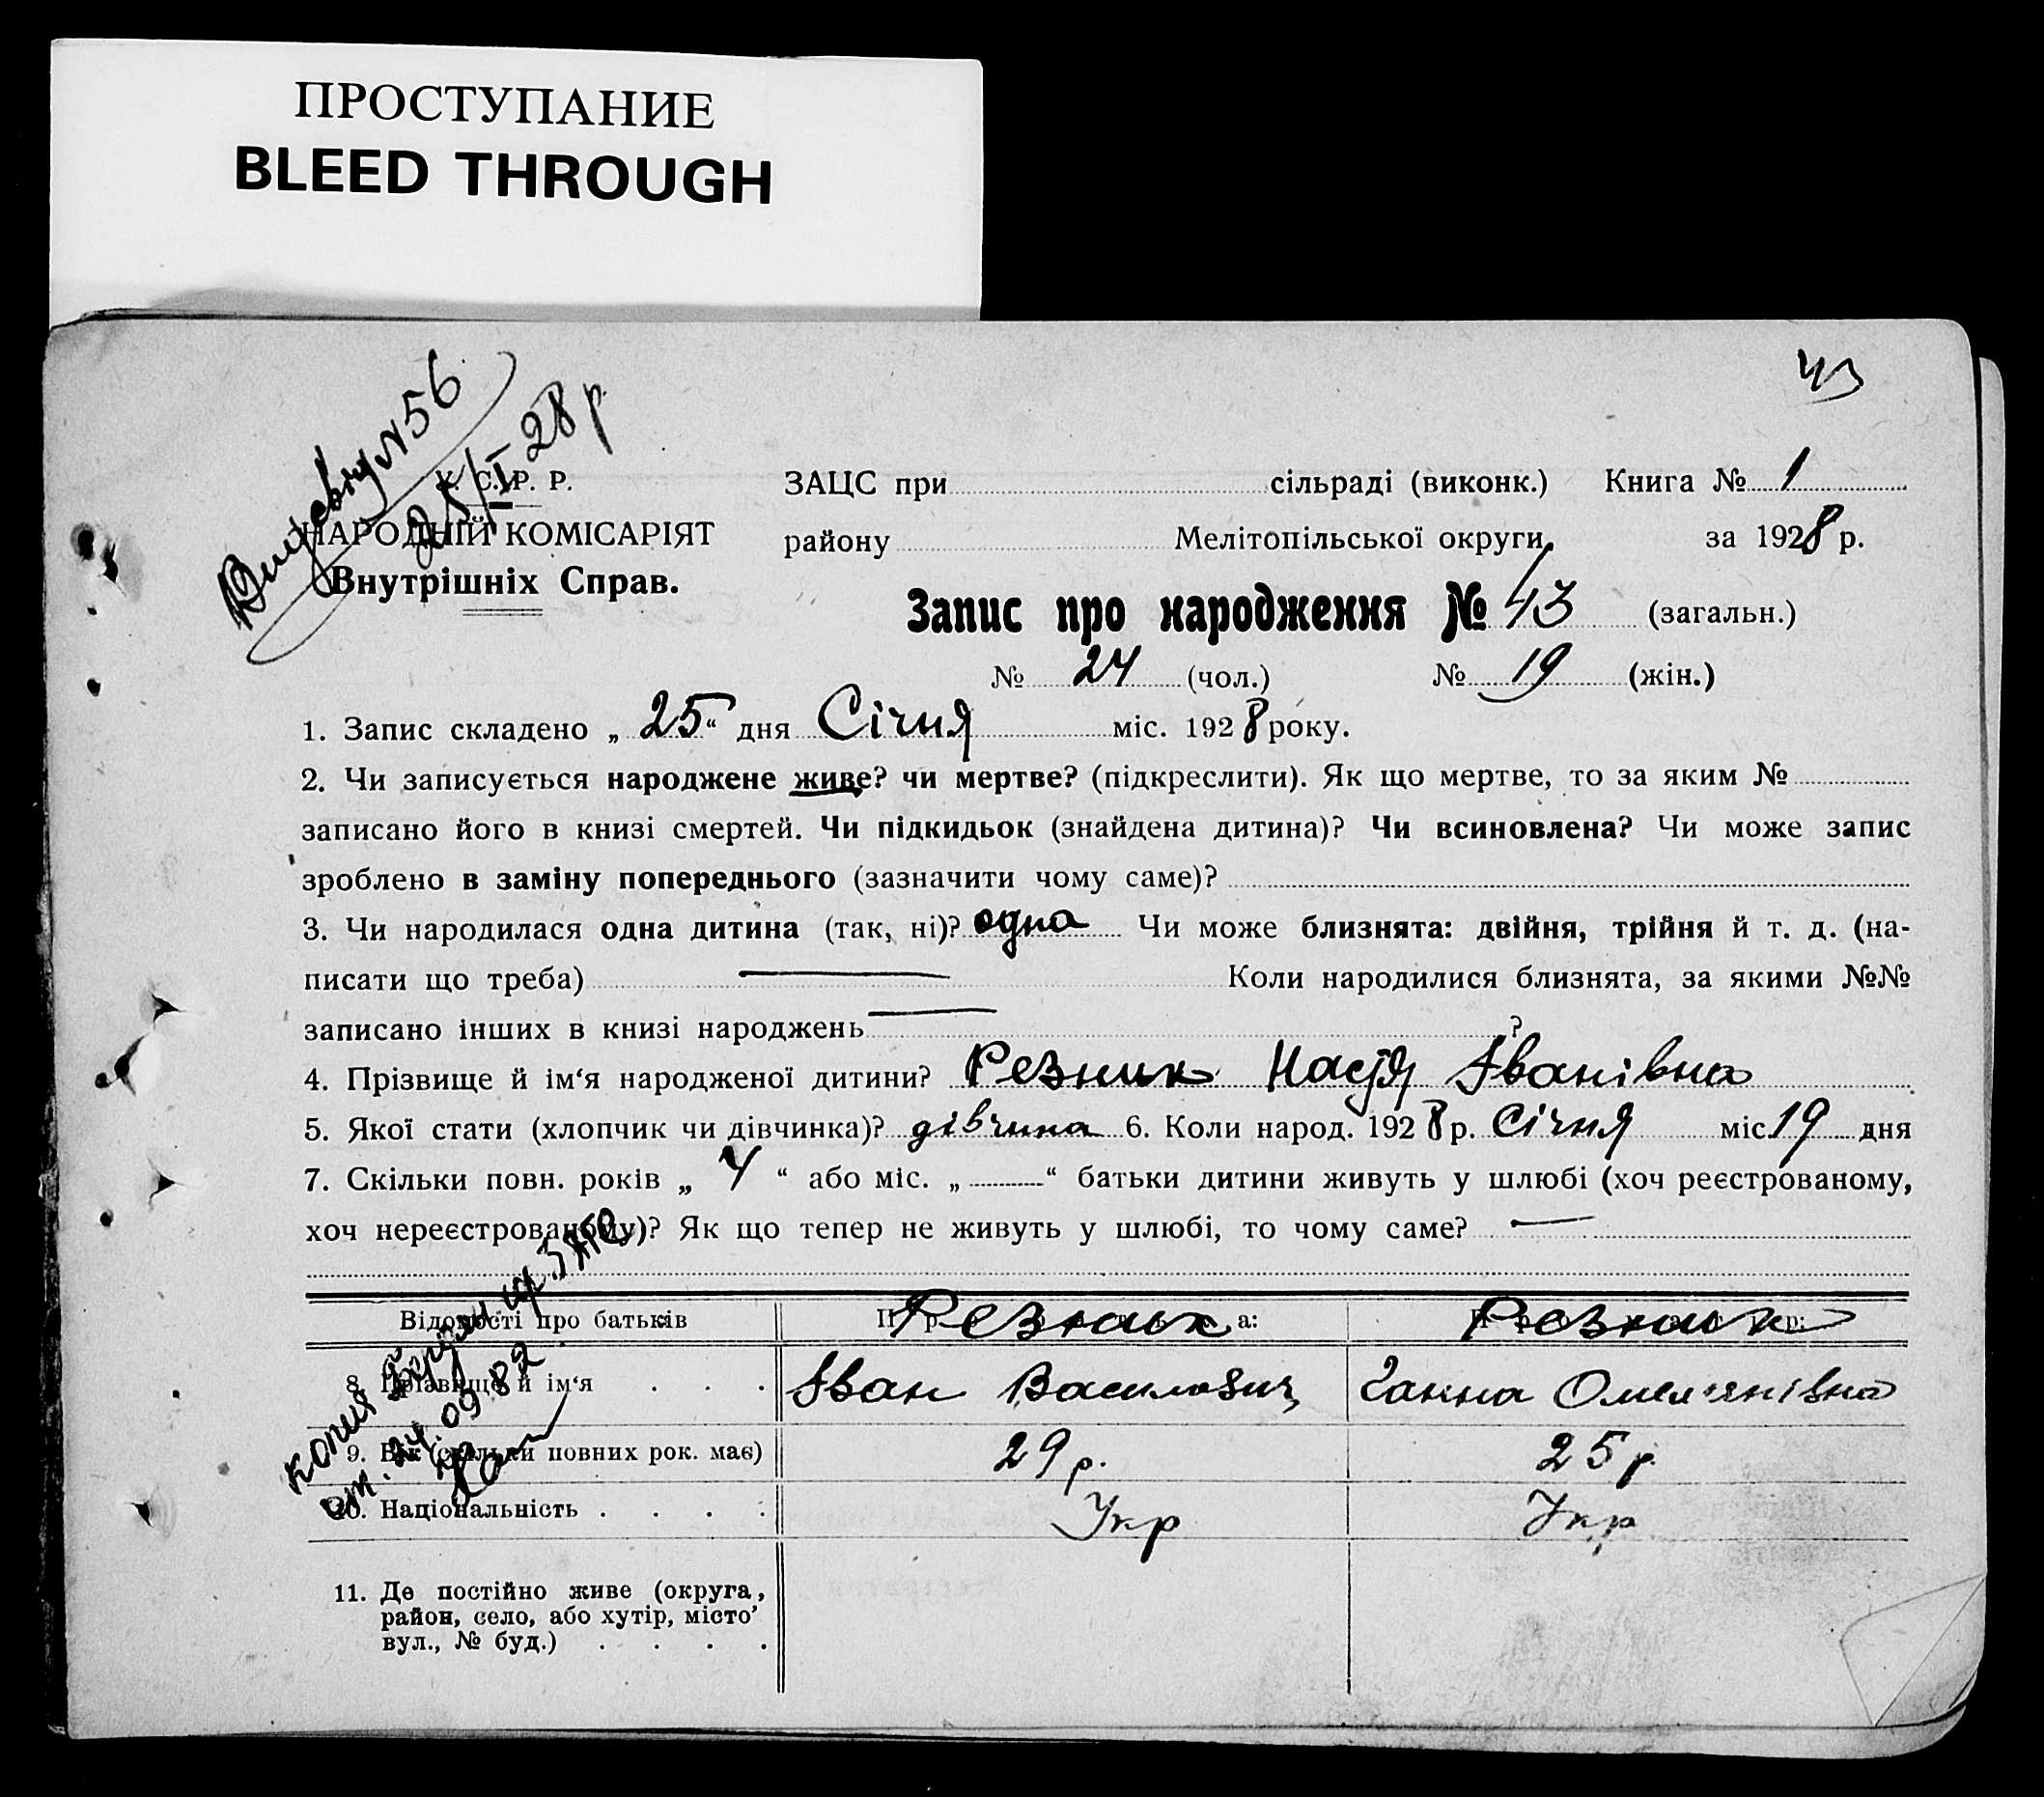 ПРОСТУПАНИЕ
BLEED THROUGH
43
№ 56
28 р
У. С. Р. Р.
НАРОДНІЙ КОМІСАРІЯТ
Внутрішніх Справ.
ЗАЦС при сільраді (виконк.) Книга № 1
району Мелітопільської округи, за 1928 р.
Запис про народження № 43 (загальн.)
№ 24 (чол.) № 19 (жін.)
1. Запис складено „ 25 “ дня Січня міс. 1928 року.
2. Чи записується народжене живе? чи мертве? (підкреслити). Як що мертве, то за яким №
записано його в книзі смертей. Чи підкидьок (знайдена дитина)? Чи всиновлена? Чи може запис
зроблено в заміну попереднього (зазначити чому саме)?
3. Чи народилася одна дитина (так, ні)? одна Чи може близнята: двійня, трійня й т. д. (на-
писати що треба) — Коли народилися близнята, за якими №№
записано інших в книзі народжень — ?
4. Прізвище й ім‘я народженої дитини? Резник Іванівна
5. Якої стати (хлопчик чи дівчинка)? дівчина 6. Коли народ. 1928 р. Січня міс 19 дня
7. Скільки повн. років „ 4 “ або міс. „ “ батьки дитини живуть у шлюбі (хоч реєстрованому,
хоч нереєстрованому)? Як що тепер не живуть у шлюбі, то чому саме? —
Відомості про батьків Резник Резник
8. Прізвище й ім‘я . . . Іван Василович Ганна Омелянівна
9. Вік (скільки повних рок. має) 29 р. 25 р.
10. Національність . . . . Укр Укр
11. Де постійно живе (округа,
район, село, або хутір, місто’
вул., № буд.) . . . .
копия ЗАГС
от. 24.09.82